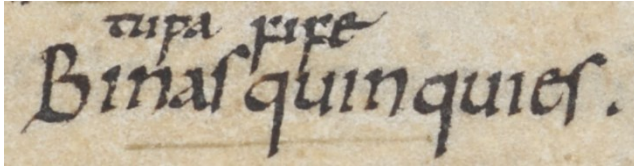 tuƿa fife
Binaſ quinquieſ.